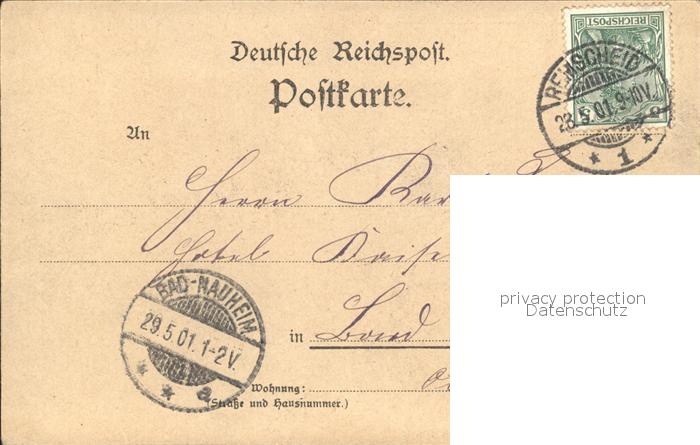 REICHSPOST
Deutsche Reichspost.
Postkarte.
REMSCHEID
28.5.01.9-10V.
* 1 *
An
Herrn
Hotel
privacy protection
Datenschutz
BAD-NAUHEIM
29.5.01.1-2V.
* * a
in
Wohnung:
(Straße und Hausnummer.)